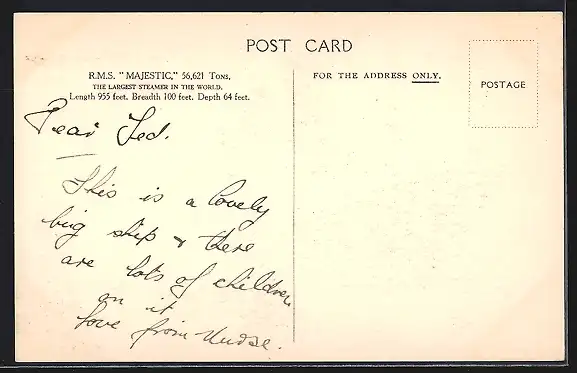 POST CARD
R.M.S. "MAJESTIC," 56,621 Tons,
THE LARGEST STEAMER IN THE WORLD.
Length 955 feet. Breadth 100 feet. Depth 64 feet.
FOR THE ADDRESS ONLY.
POSTAGE
Dear Ted.
This is a lovely
big ship & there
are lots of children
on it
love from Nurse.